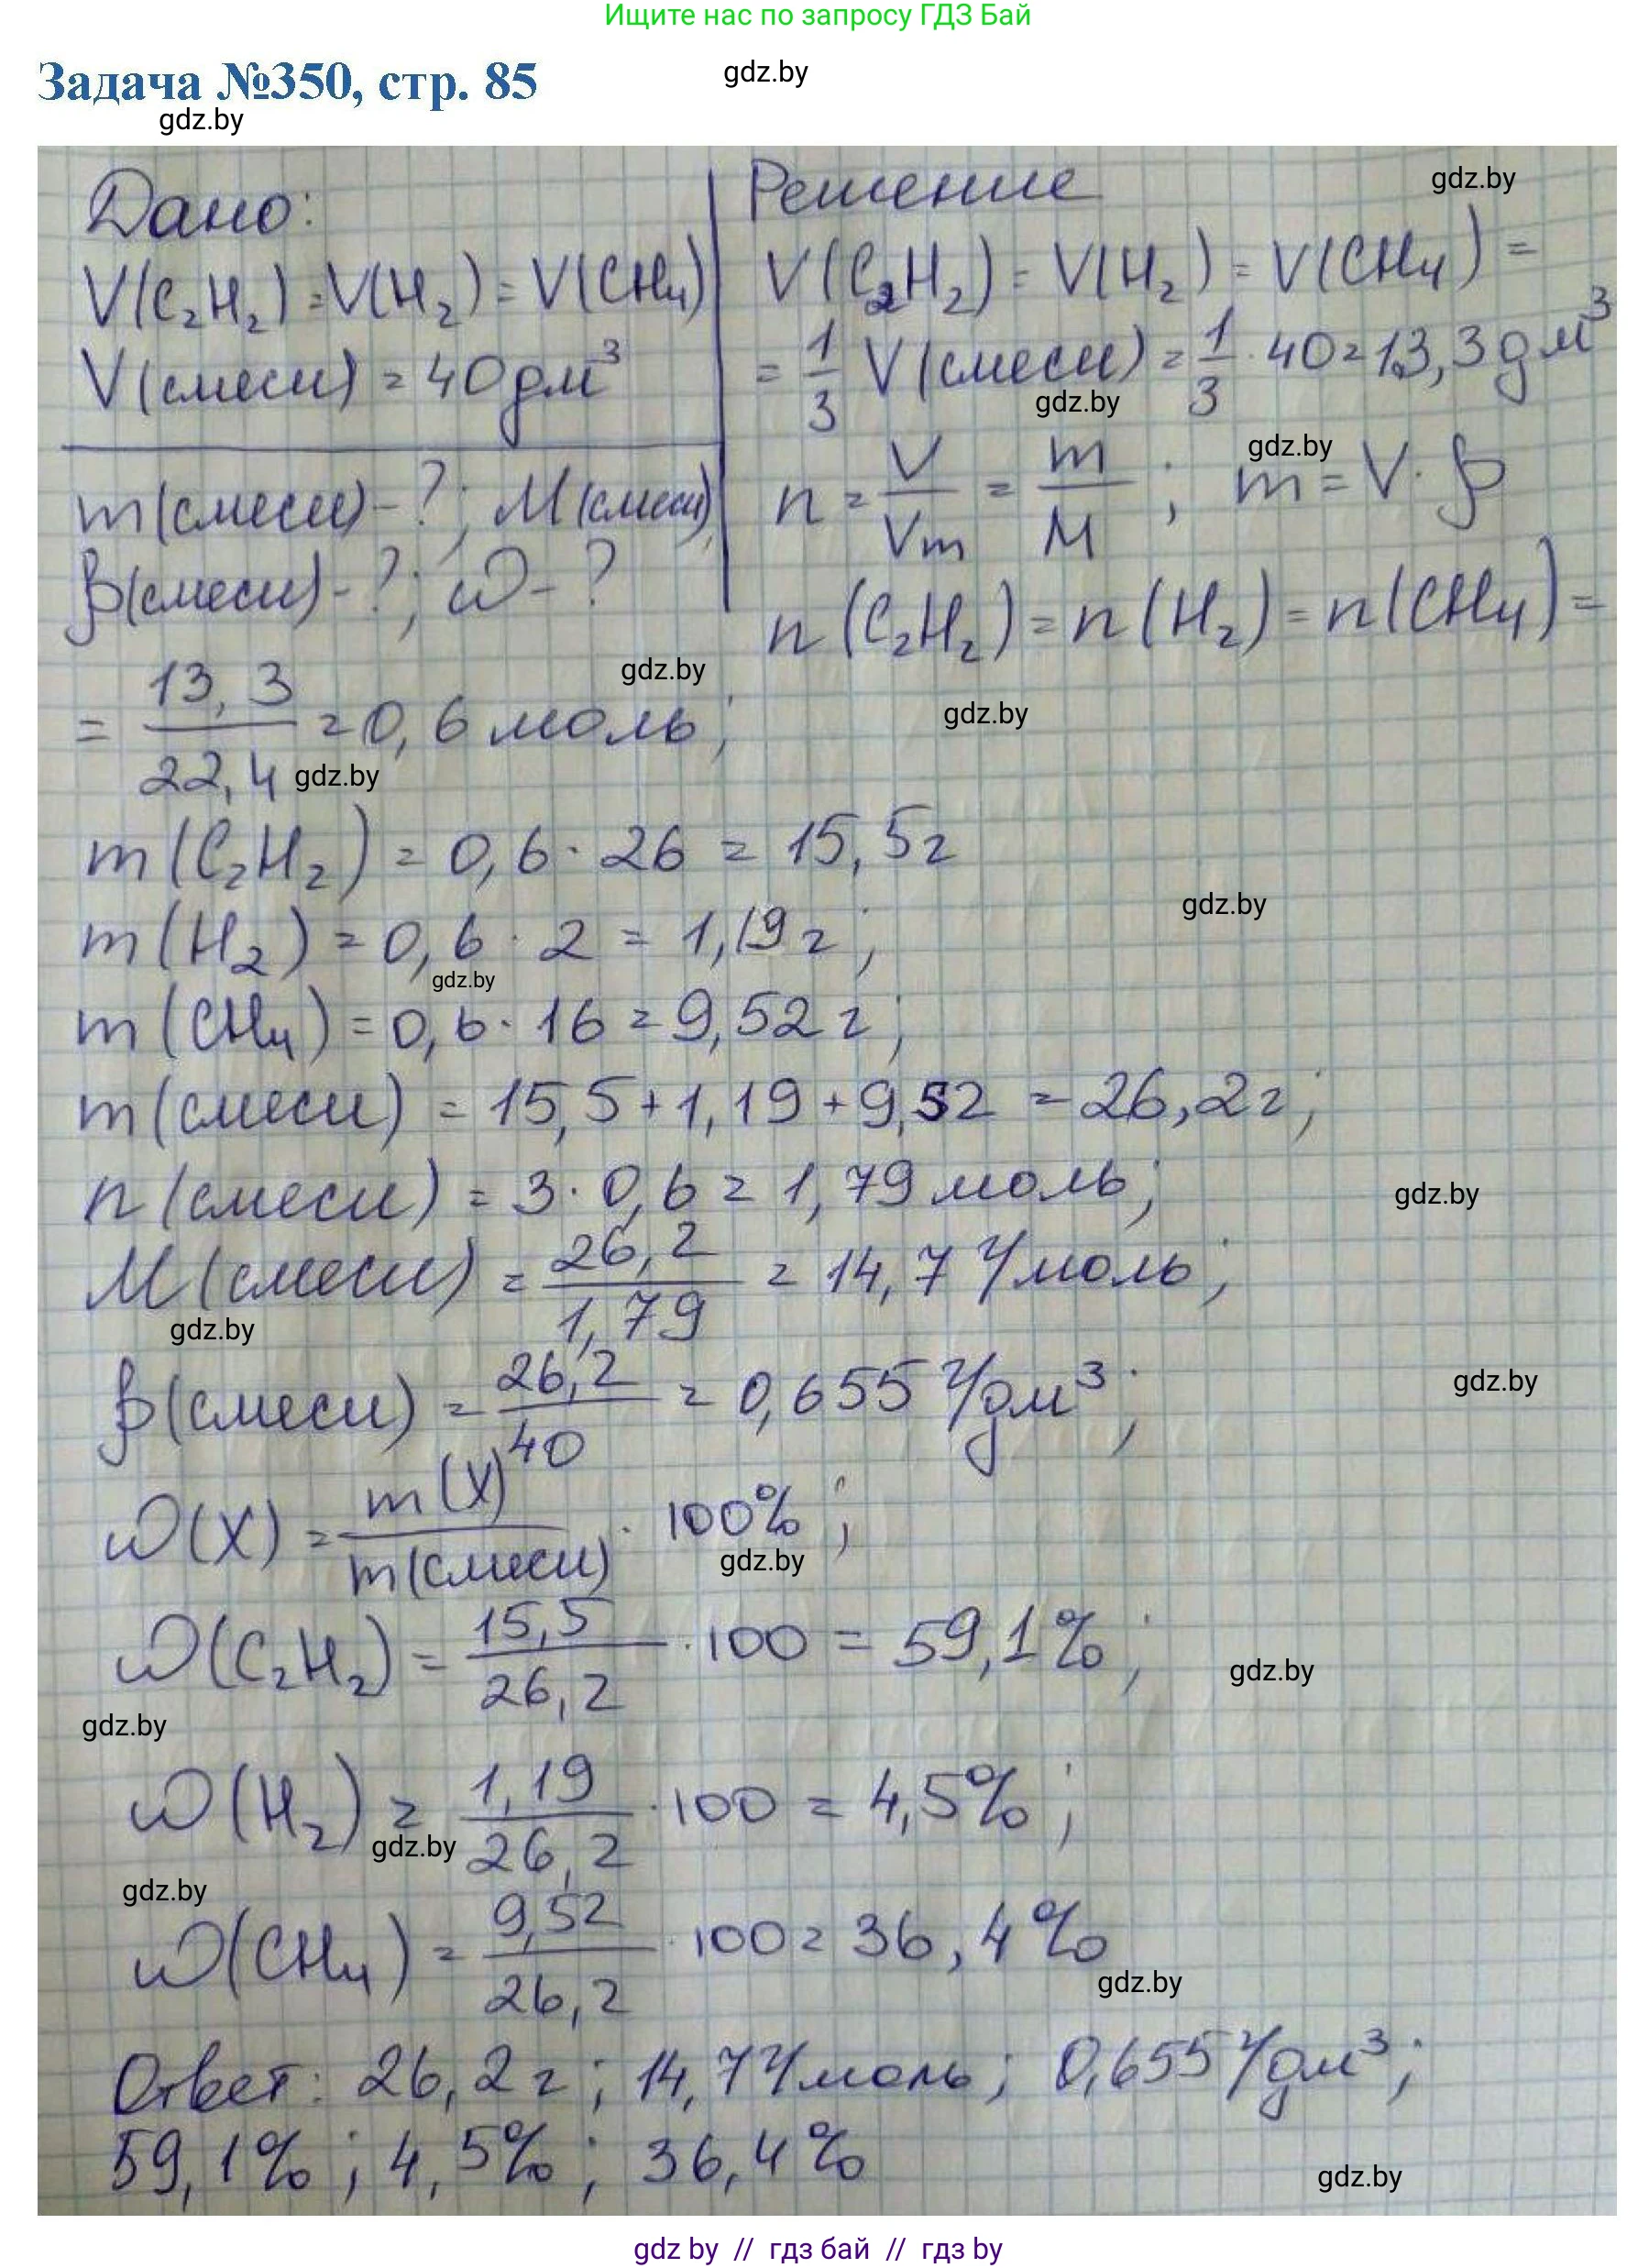 Ищите нас по запросу ГДЗ Бай
Задача №350, стр. 85
gdz.by
gdz.by
Дано:
V(C₂H₂) = V(H₂) = V(CH₄)
V(смеси) = 40 дм³
m(смеси) - ?; M(смеси),
ρ(смеси) - ?; ω - ?
Решение
gdz.by
V(C₂H₂) = V(H₂) = V(CH₄) =
= 1/3 V(смеси) = 1/3 · 40 = 13,3 дм³
gdz.by
gdz.by
n = V/Vm = m/M ; m = V · ρ
n(C₂H₂) = n(H₂) = n(CH₄) =
gdz.by
gdz.by
= 13,3/22,4 = 0,6 моль;
gdz.by
m(C₂H₂) = 0,6 · 26 = 15,5 г
gdz.by
m(H₂) = 0,6 · 2 = 1,19 г;
gdz.by
m(CH₄) = 0,6 · 16 = 9,52 г;
m(смеси) = 15,5 + 1,19 + 9,52 = 26,2 г;
n(смеси) = 3 · 0,6 = 1,79 моль;
gdz.by
M(смеси) = 26,2/1,79 = 14,7 г/моль;
gdz.by
ρ(смеси) = 26,2/40 = 0,655 г/дм³;
gdz.by
ω(X) = m(X)/m(смеси) · 100%;
gdz.by
ω(C₂H₂) = 15,5/26,2 · 100 = 59,1%;
gdz.by
gdz.by
ω(H₂) = 1,19/26,2 · 100 = 4,5%;
gdz.by
gdz.by
ω(CH₄) = 9,52/26,2 · 100 = 36,4%
gdz.by
Ответ: 26,2 г; 14,7 г/моль; 0,655 г/дм³;
59,1%; 4,5%; 36,4%
gdz.by
gdz by // гдз бай // гдз by